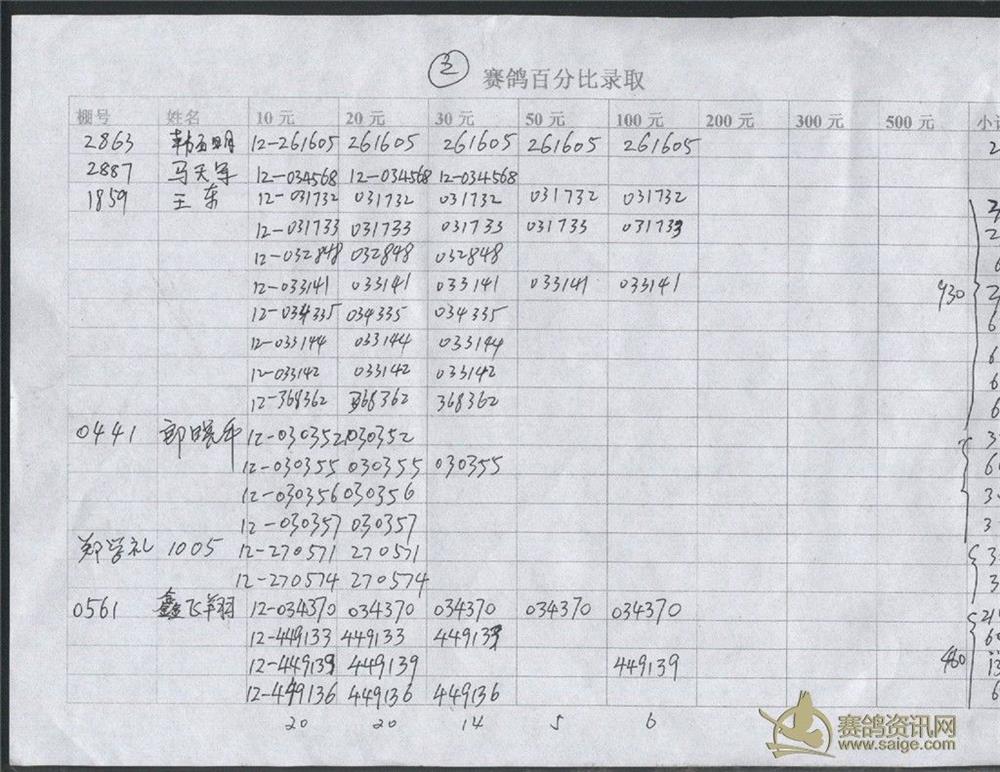 ③ 赛鸽百分比录取
棚号 姓名 10元 20元 30元 50元 100元 200元 300元 500元 小
2863 12-261605 261605 261605 261605 261605
2887 马天军 12-034568 12-034568 12-034568
1859 王东 12-031732 031732 031732 031732 031732
12-031733 031733 031733 031733 031733
12-032848 032848 032848
12-033141 033141 033141 033141 033141 930
12-034335 034335 034335
12-033144 033144 033144
12-033142 033142 033142
12-368362 368362 368362
0441 12-030352 030352
12-030355 030355 030355
12-030356 030356
12-030357 030357
郑学礼 1005 12-270571 270571
12-270574 270574
0561 鑫飞翔 12-034370 034370 034370 034370 034370
12-449133 449133 449133
12-449139 449139 449139 460
12-449136 449136 449136
20 20 14 5 6
赛鸽资讯网
www.saige.com